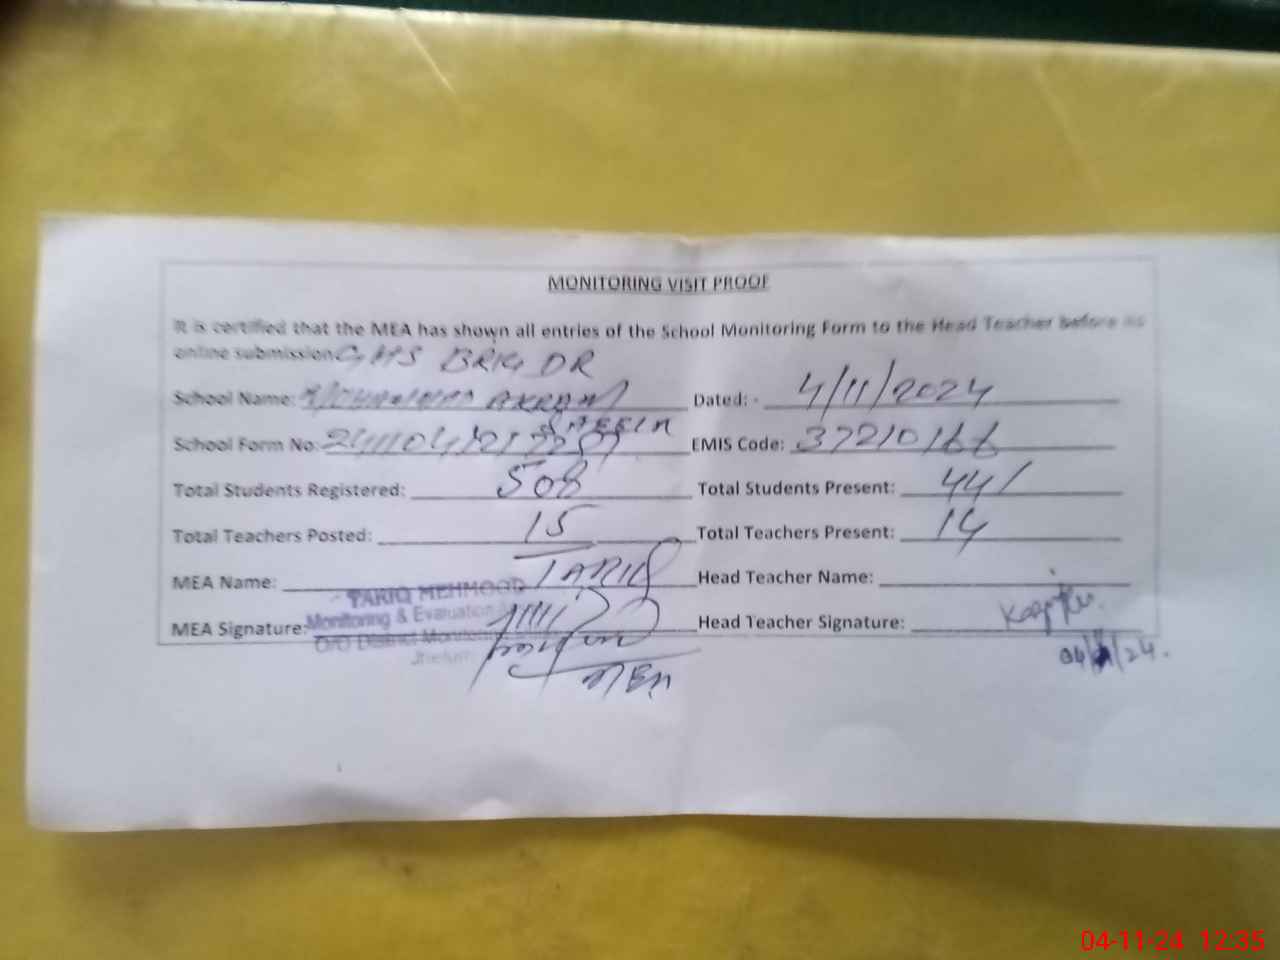 MONITORING VISIT PROOF
It is certified that the MEA has shown all entries of the School Monitoring Form to the Head Teacher before its
online submission GHS BRIG DR
School Name: MUHAMMAD AKRAM Dated: - 4/11/2024
School Form No: EMIS Code: 37210166
Total Students Registered: 508 Total Students Present: 441
Total Teachers Posted: 15 Total Teachers Present: 14
MEA Name: TARIQ Head Teacher Name:
TARIQ MEHMOOD
Monitoring & Evaluation
MEA Signature: Head Teacher Signature:
O/O District Monitoring
Jhelum
MEA
04/11/24.
04-11-24 12:35